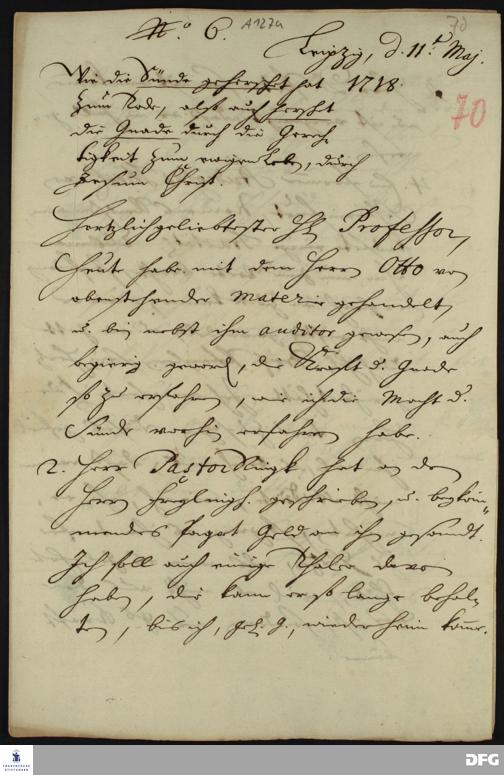 N.º 6. A127a 70
Leipzig, d. 11.t Maj.
Wie die Sünde geherrschet hat 1718.
zum Tode, also auch herrscht 70
die Gnade durch die Gerech-
tigkeit zum ewigen Leben, durch
Jesum Christ.
Hertzlichgeliebtester H. Professor,
Heut habe mit dem Herrn Otto von
obenstehender Materie gehandelt,
u. bin nebst ihm auditor gewesen, auch
begierig geword, die Krafft d. Gnade
so zu erfahren, wie ich die Macht d.
Sünde vorhin erfahren habe.
2. Herr Pastor hat an den
Herrn geschrieben, u. beykom-
mendes Paqvet Geld an ihn gesandt.
Ich soll auch einige Thaler davon
haben, die kann er so lange behal-
ten, bis ich, g. G., wieder heim komme.
FRANCKESCHE STIFTUNGEN
DFG